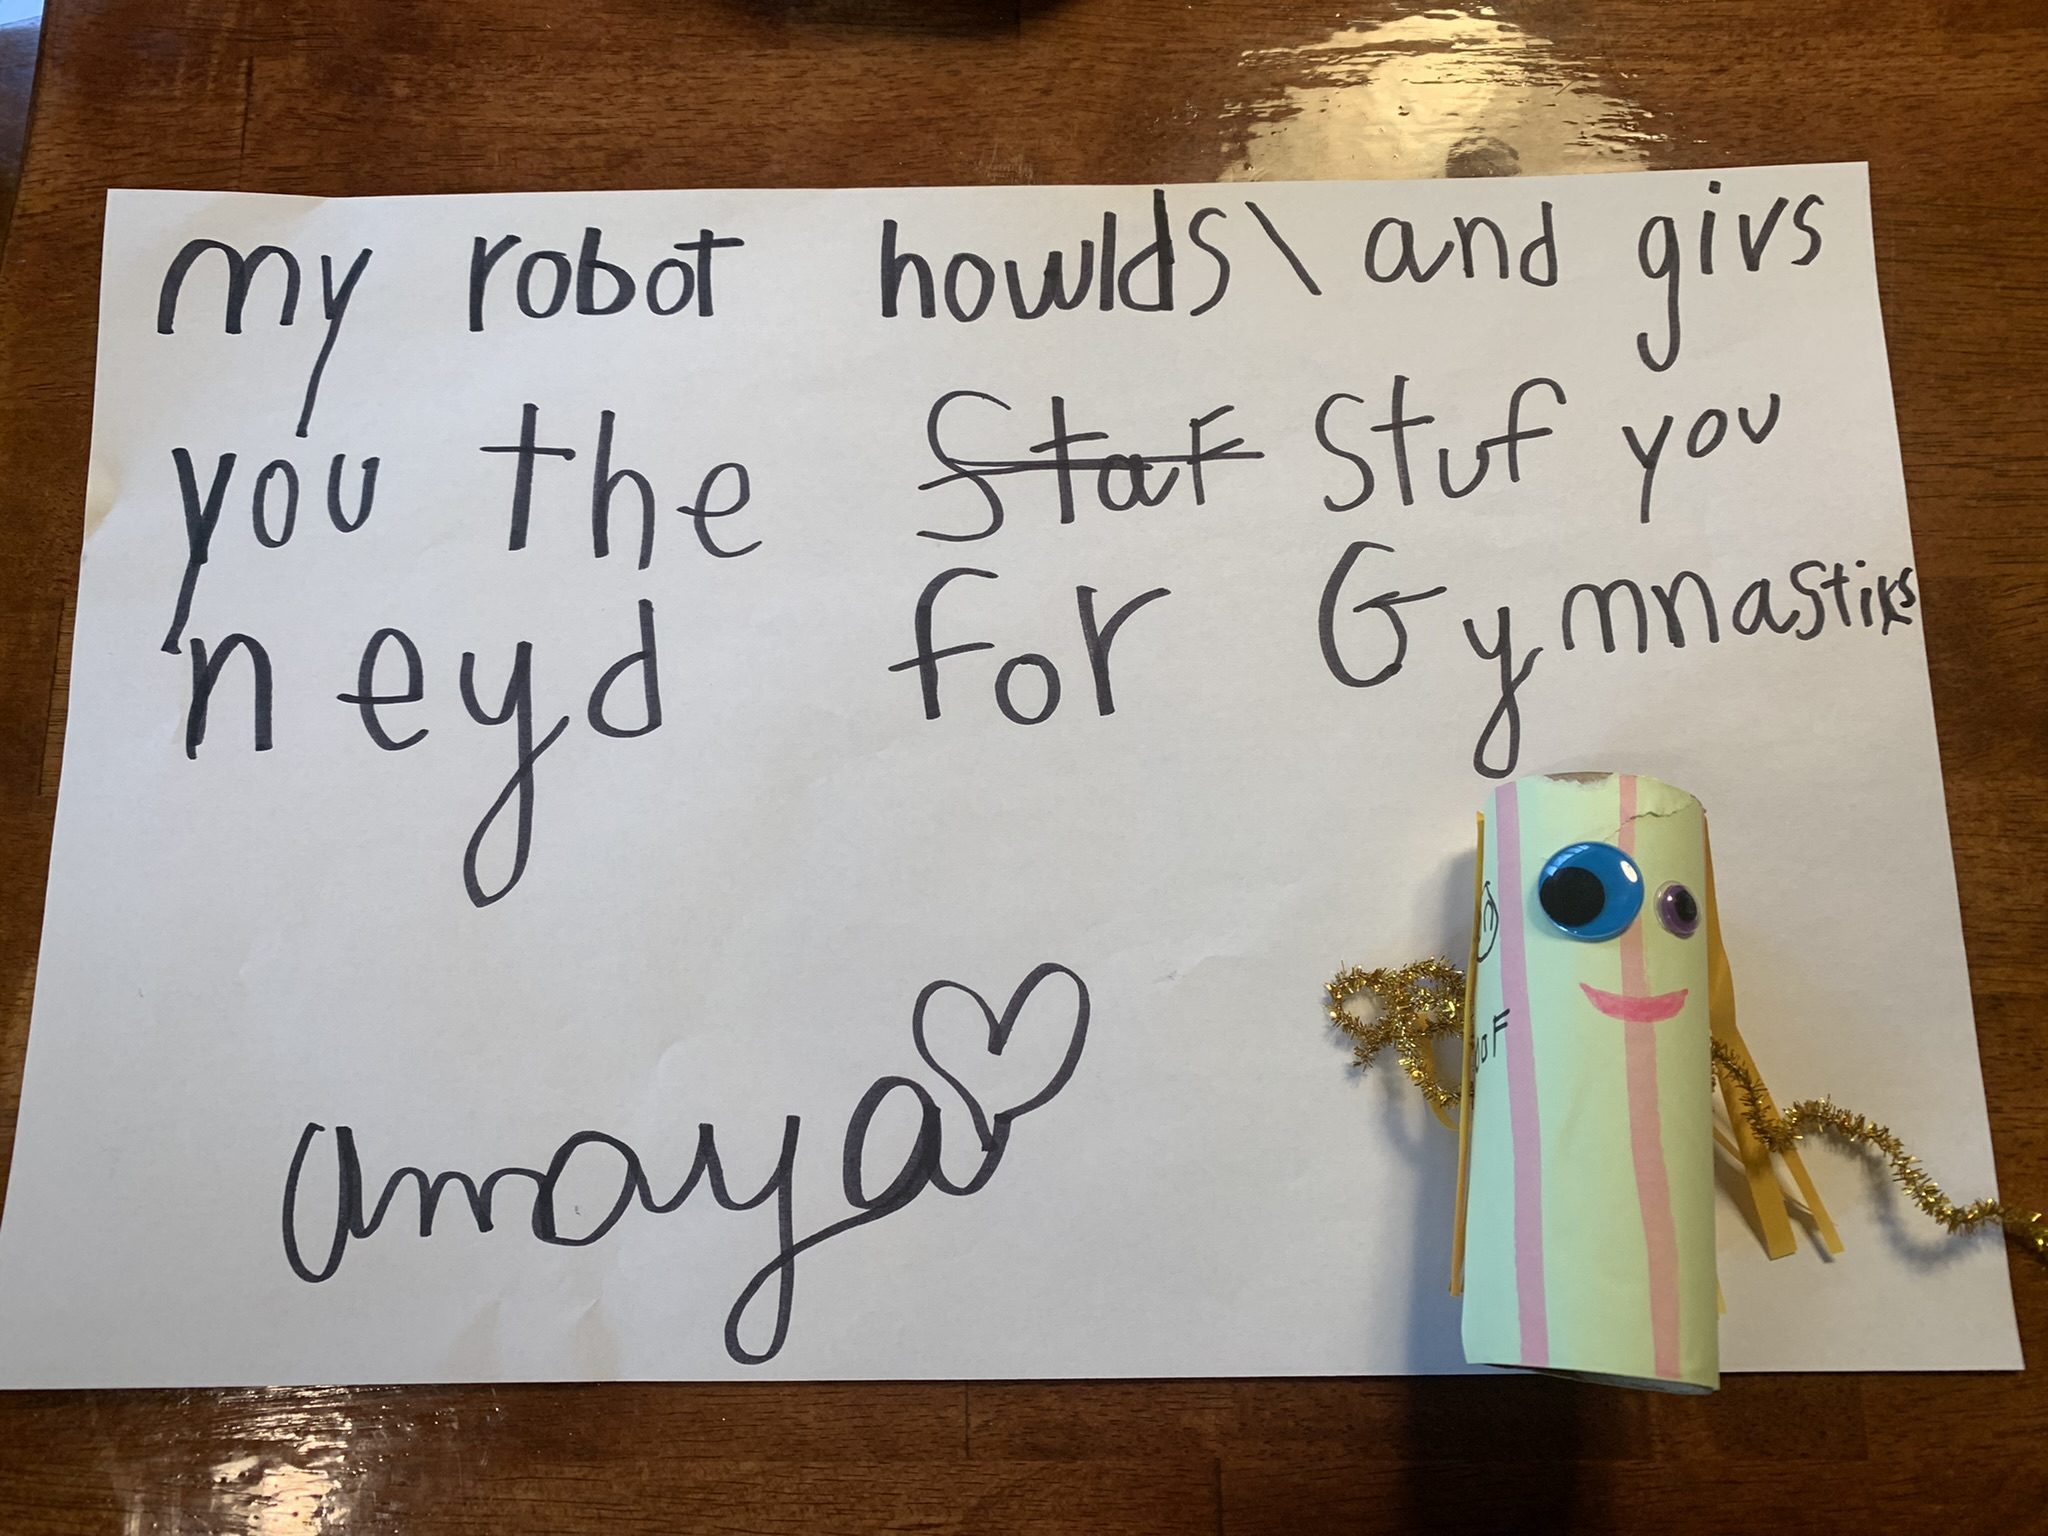 my robot howlds\ and givs
you the staf stuf you
neyd for Gymnastiks
amaya